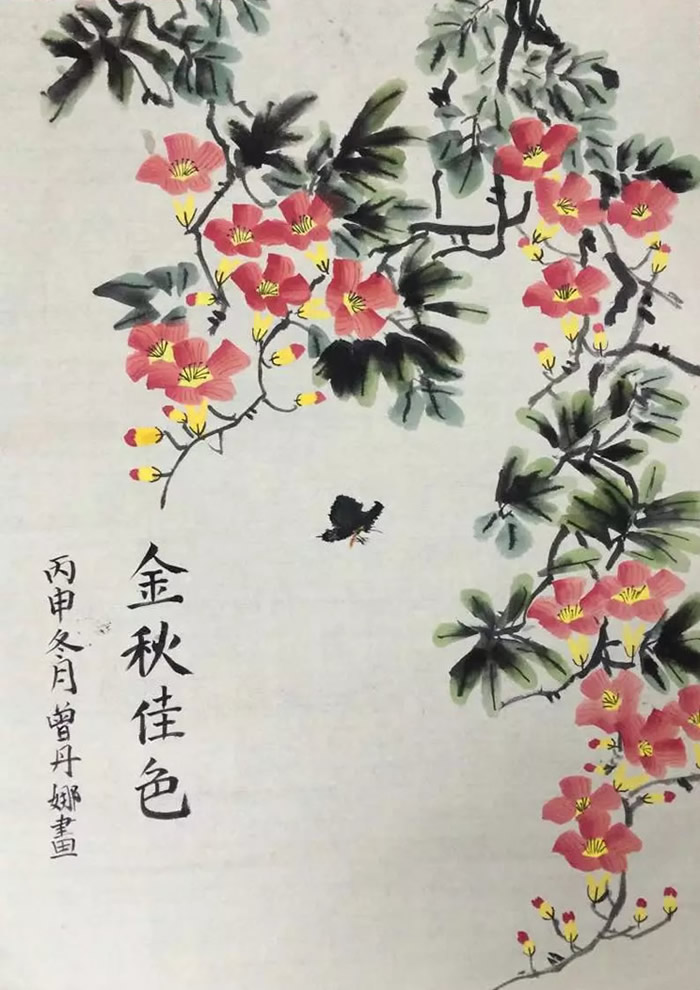 金秋佳色
丙申冬月曾丹娜畫